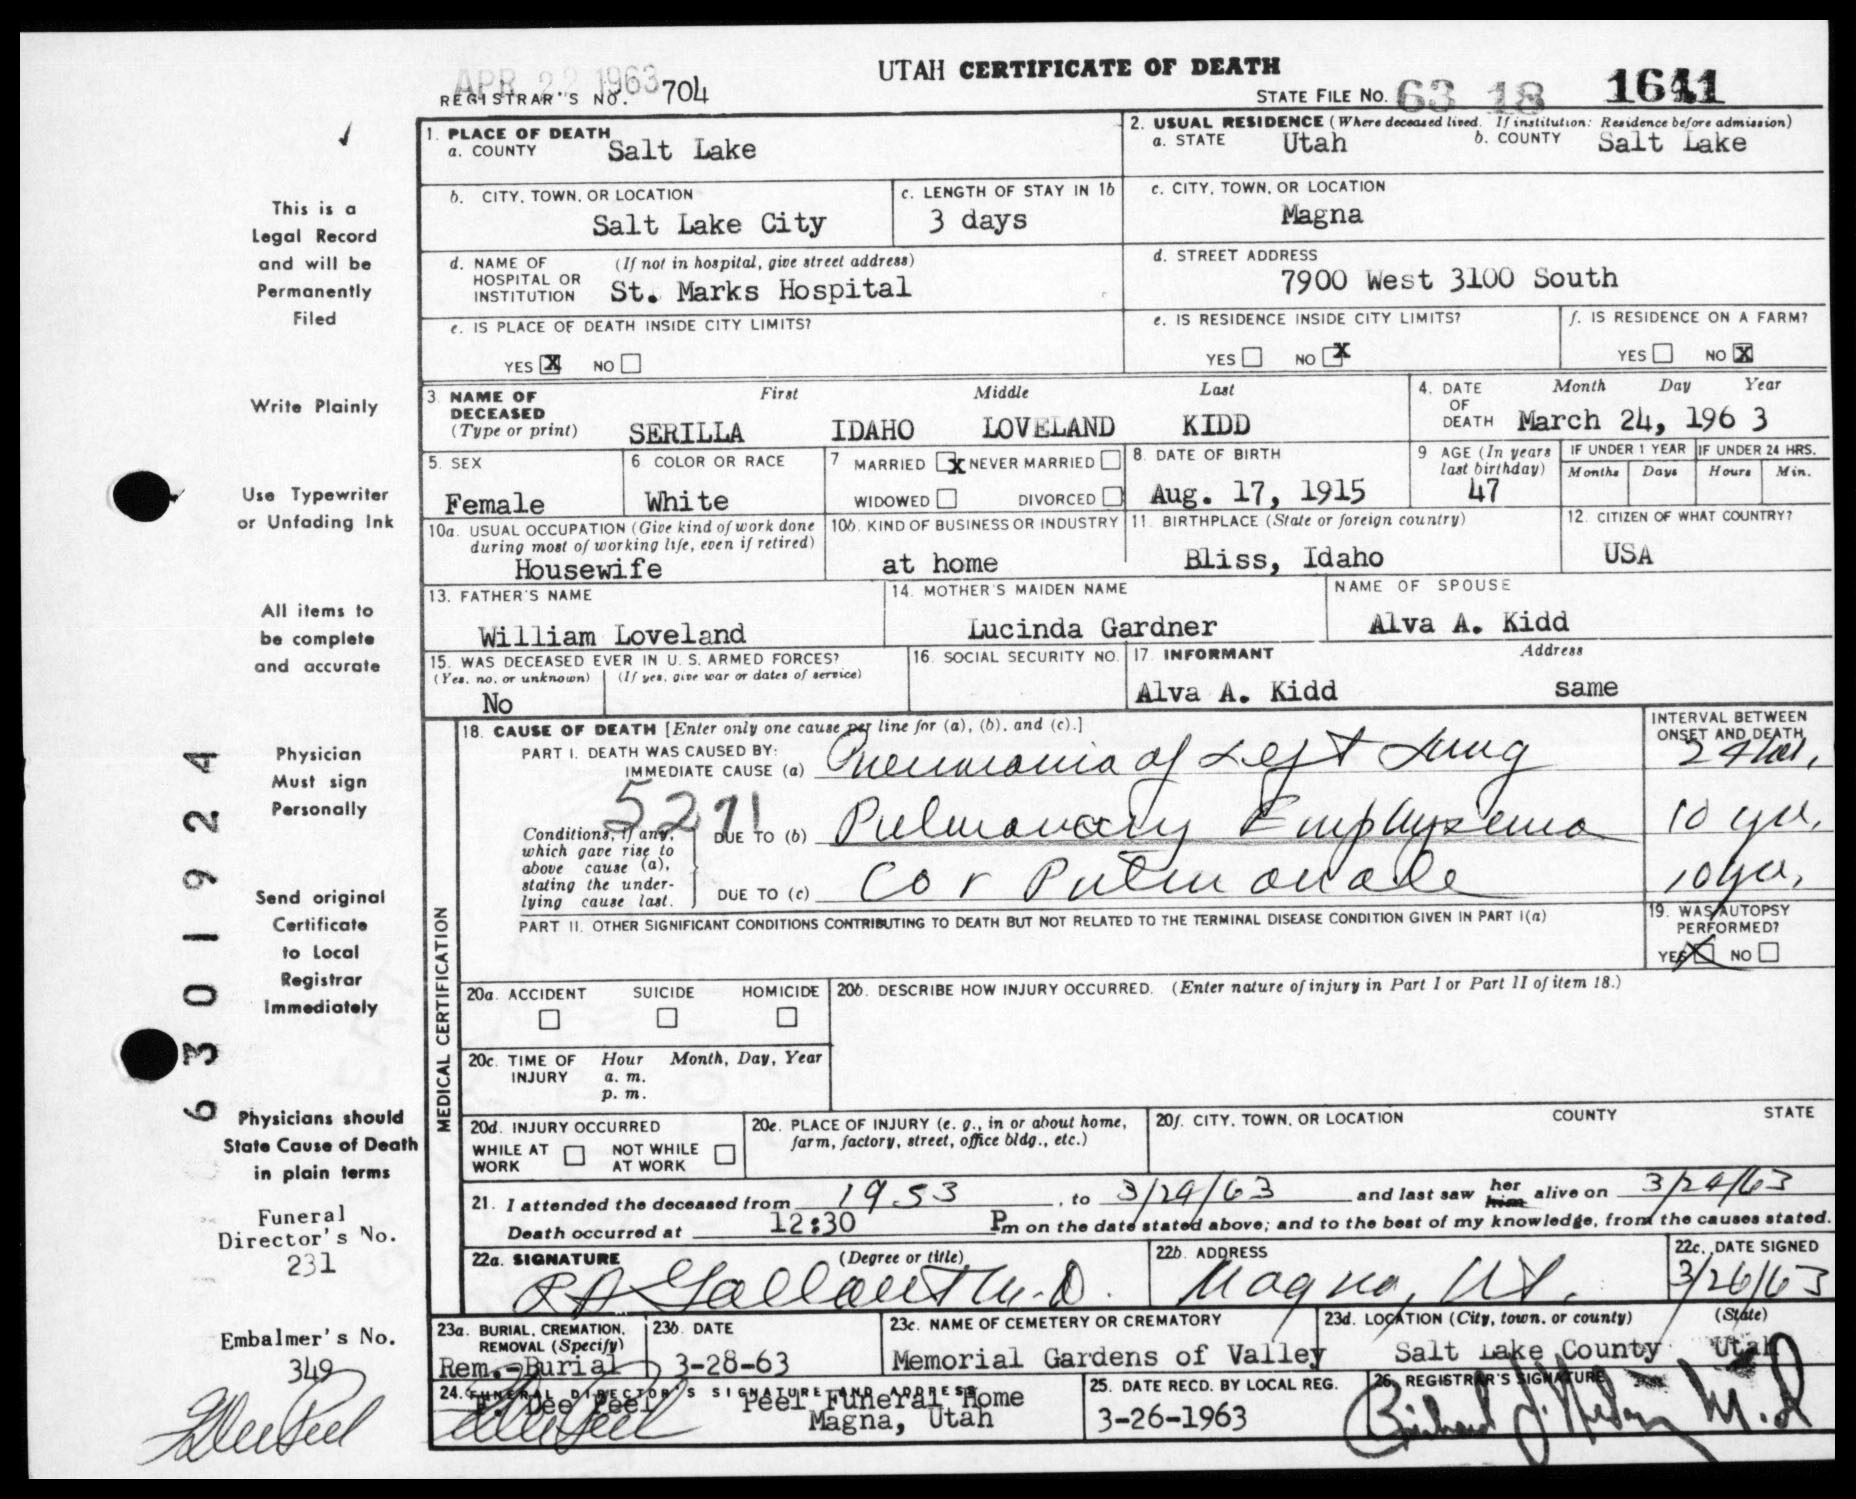 UTAH CERTIFICATE OF DEATH
APR 22 1963
REGISTRAR'S NO. 704
STATE FILE NO. 63 18 1641
This is a
Legal Record
and will be
Permanently
Filed
Write Plainly
Use Typewriter
or Unfading Ink
All items to
be complete
and accurate
Physician
Must sign
Personally
Send original
Certificate
to Local
Registrar
Immediately
Physicians should
State Cause of Death
in plain terms
Funeral
Director's No.
231
Embalmer's No.
349
6301924
1. PLACE OF DEATH
a. COUNTY Salt Lake
2. USUAL RESIDENCE (Where deceased lived. If institution: Residence before admission)
a. STATE Utah b. COUNTY Salt Lake
b. CITY, TOWN, OR LOCATION
Salt Lake City
c. LENGTH OF STAY IN 1b
3 days
c. CITY, TOWN, OR LOCATION
Magna
d. NAME OF HOSPITAL OR INSTITUTION (If not in hospital, give street address)
St. Marks Hospital
d. STREET ADDRESS
7900 West 3100 South
e. IS PLACE OF DEATH INSIDE CITY LIMITS?
YES X NO
e. IS RESIDENCE INSIDE CITY LIMITS?
YES NO X
f. IS RESIDENCE ON A FARM?
YES NO X
3 NAME OF DECEASED (Type or print)
First Middle Last
SERILLA IDAHO LOVELAND KIDD
4. DATE OF DEATH Month Day Year
March 24, 196 3
5. SEX
Female
6 COLOR OR RACE
White
7 MARRIED X NEVER MARRIED
WIDOWED DIVORCED
8. DATE OF BIRTH
Aug. 17, 1915
9 AGE (In years last birthday)
47
IF UNDER 1 YEAR IF UNDER 24 HRS.
Months Days Hours Min.
10a. USUAL OCCUPATION (Give kind of work done during most of working life, even if retired)
Housewife
10b. KIND OF BUSINESS OR INDUSTRY
at home
11. BIRTHPLACE (State or foreign country)
Bliss, Idaho
12. CITIZEN OF WHAT COUNTRY?
USA
13. FATHER'S NAME
William Loveland
14. MOTHER'S MAIDEN NAME
Lucinda Gardner
NAME OF SPOUSE
Alva A. Kidd
15. WAS DECEASED EVER IN U. S. ARMED FORCES?
(Yes, no, or unknown) (If yes, give war or dates of service)
No
16. SOCIAL SECURITY NO.
17. INFORMANT Address
Alva A. Kidd same
MEDICAL CERTIFICATION
18. CAUSE OF DEATH [Enter only one cause per line for (a), (b), and (c).]
INTERVAL BETWEEN ONSET AND DEATH
PART I. DEATH WAS CAUSED BY:
IMMEDIATE CAUSE (a) Pneumonia of Left Lung 24 hrs,
5271
Conditions, if any, which gave rise to above cause (a), stating the underlying cause last.
DUE TO (b) Pulmonary Emphysema 10 yrs,
DUE TO (c) Cor Pulmonale 10 yrs,
PART II. OTHER SIGNIFICANT CONDITIONS CONTRIBUTING TO DEATH BUT NOT RELATED TO THE TERMINAL DISEASE CONDITION GIVEN IN PART I(a)
19. WAS AUTOPSY PERFORMED?
YES X NO
20a. ACCIDENT SUICIDE HOMICIDE
20b. DESCRIBE HOW INJURY OCCURRED. (Enter nature of injury in Part I or Part II of item 18.)
20c. TIME OF INJURY Hour Month, Day, Year
a. m.
p. m.
20d. INJURY OCCURRED
WHILE AT WORK NOT WHILE AT WORK
20e. PLACE OF INJURY (e. g., in or about home, farm, factory, street, office bldg., etc.)
20f. CITY, TOWN, OR LOCATION COUNTY STATE
21. I attended the deceased from 1953, to 3/24/63 and last saw her him alive on 3/24/63
Death occurred at 12:30 Pm on the date stated above; and to the best of my knowledge, from the causes stated.
22a. SIGNATURE (Degree or title)
R A Gallant M.D.
22b. ADDRESS
Magna, Ut.
22c. DATE SIGNED
3/26/63
23a. BURIAL, CREMATION, REMOVAL (Specify)
Rem.-Burial
23b. DATE
3-28-63
23c. NAME OF CEMETERY OR CREMATORY
Memorial Gardens of Valley
23d. LOCATION (City, town, or county) (State)
Salt Lake County Utah
24. FUNERAL DIRECTOR'S SIGNATURE AND ADDRESS
F. Dee Peel Peel Funeral Home
Magna, Utah
25. DATE RECD. BY LOCAL REG.
3-26-1963
26. REGISTRAR'S SIGNATURE